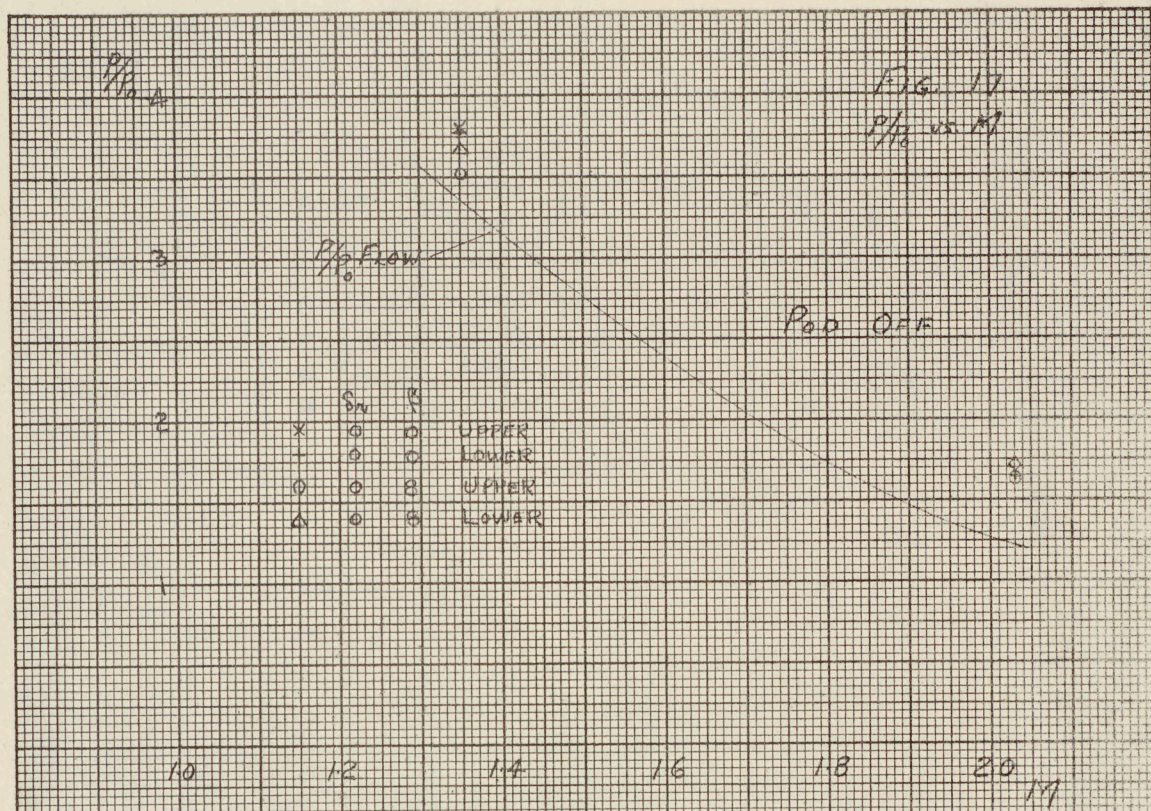 P/P₀
4
FIG. 17
P/P₀ vs. M
3
P/P₀ FLOW
POD OFF
2
β
× 0 0 UPPER
+ 0 0 LOWER
○ 0 8 UPPER
△ 0 8 LOWER
1
1.0 1.2 1.4 1.6 1.8 2.0
M